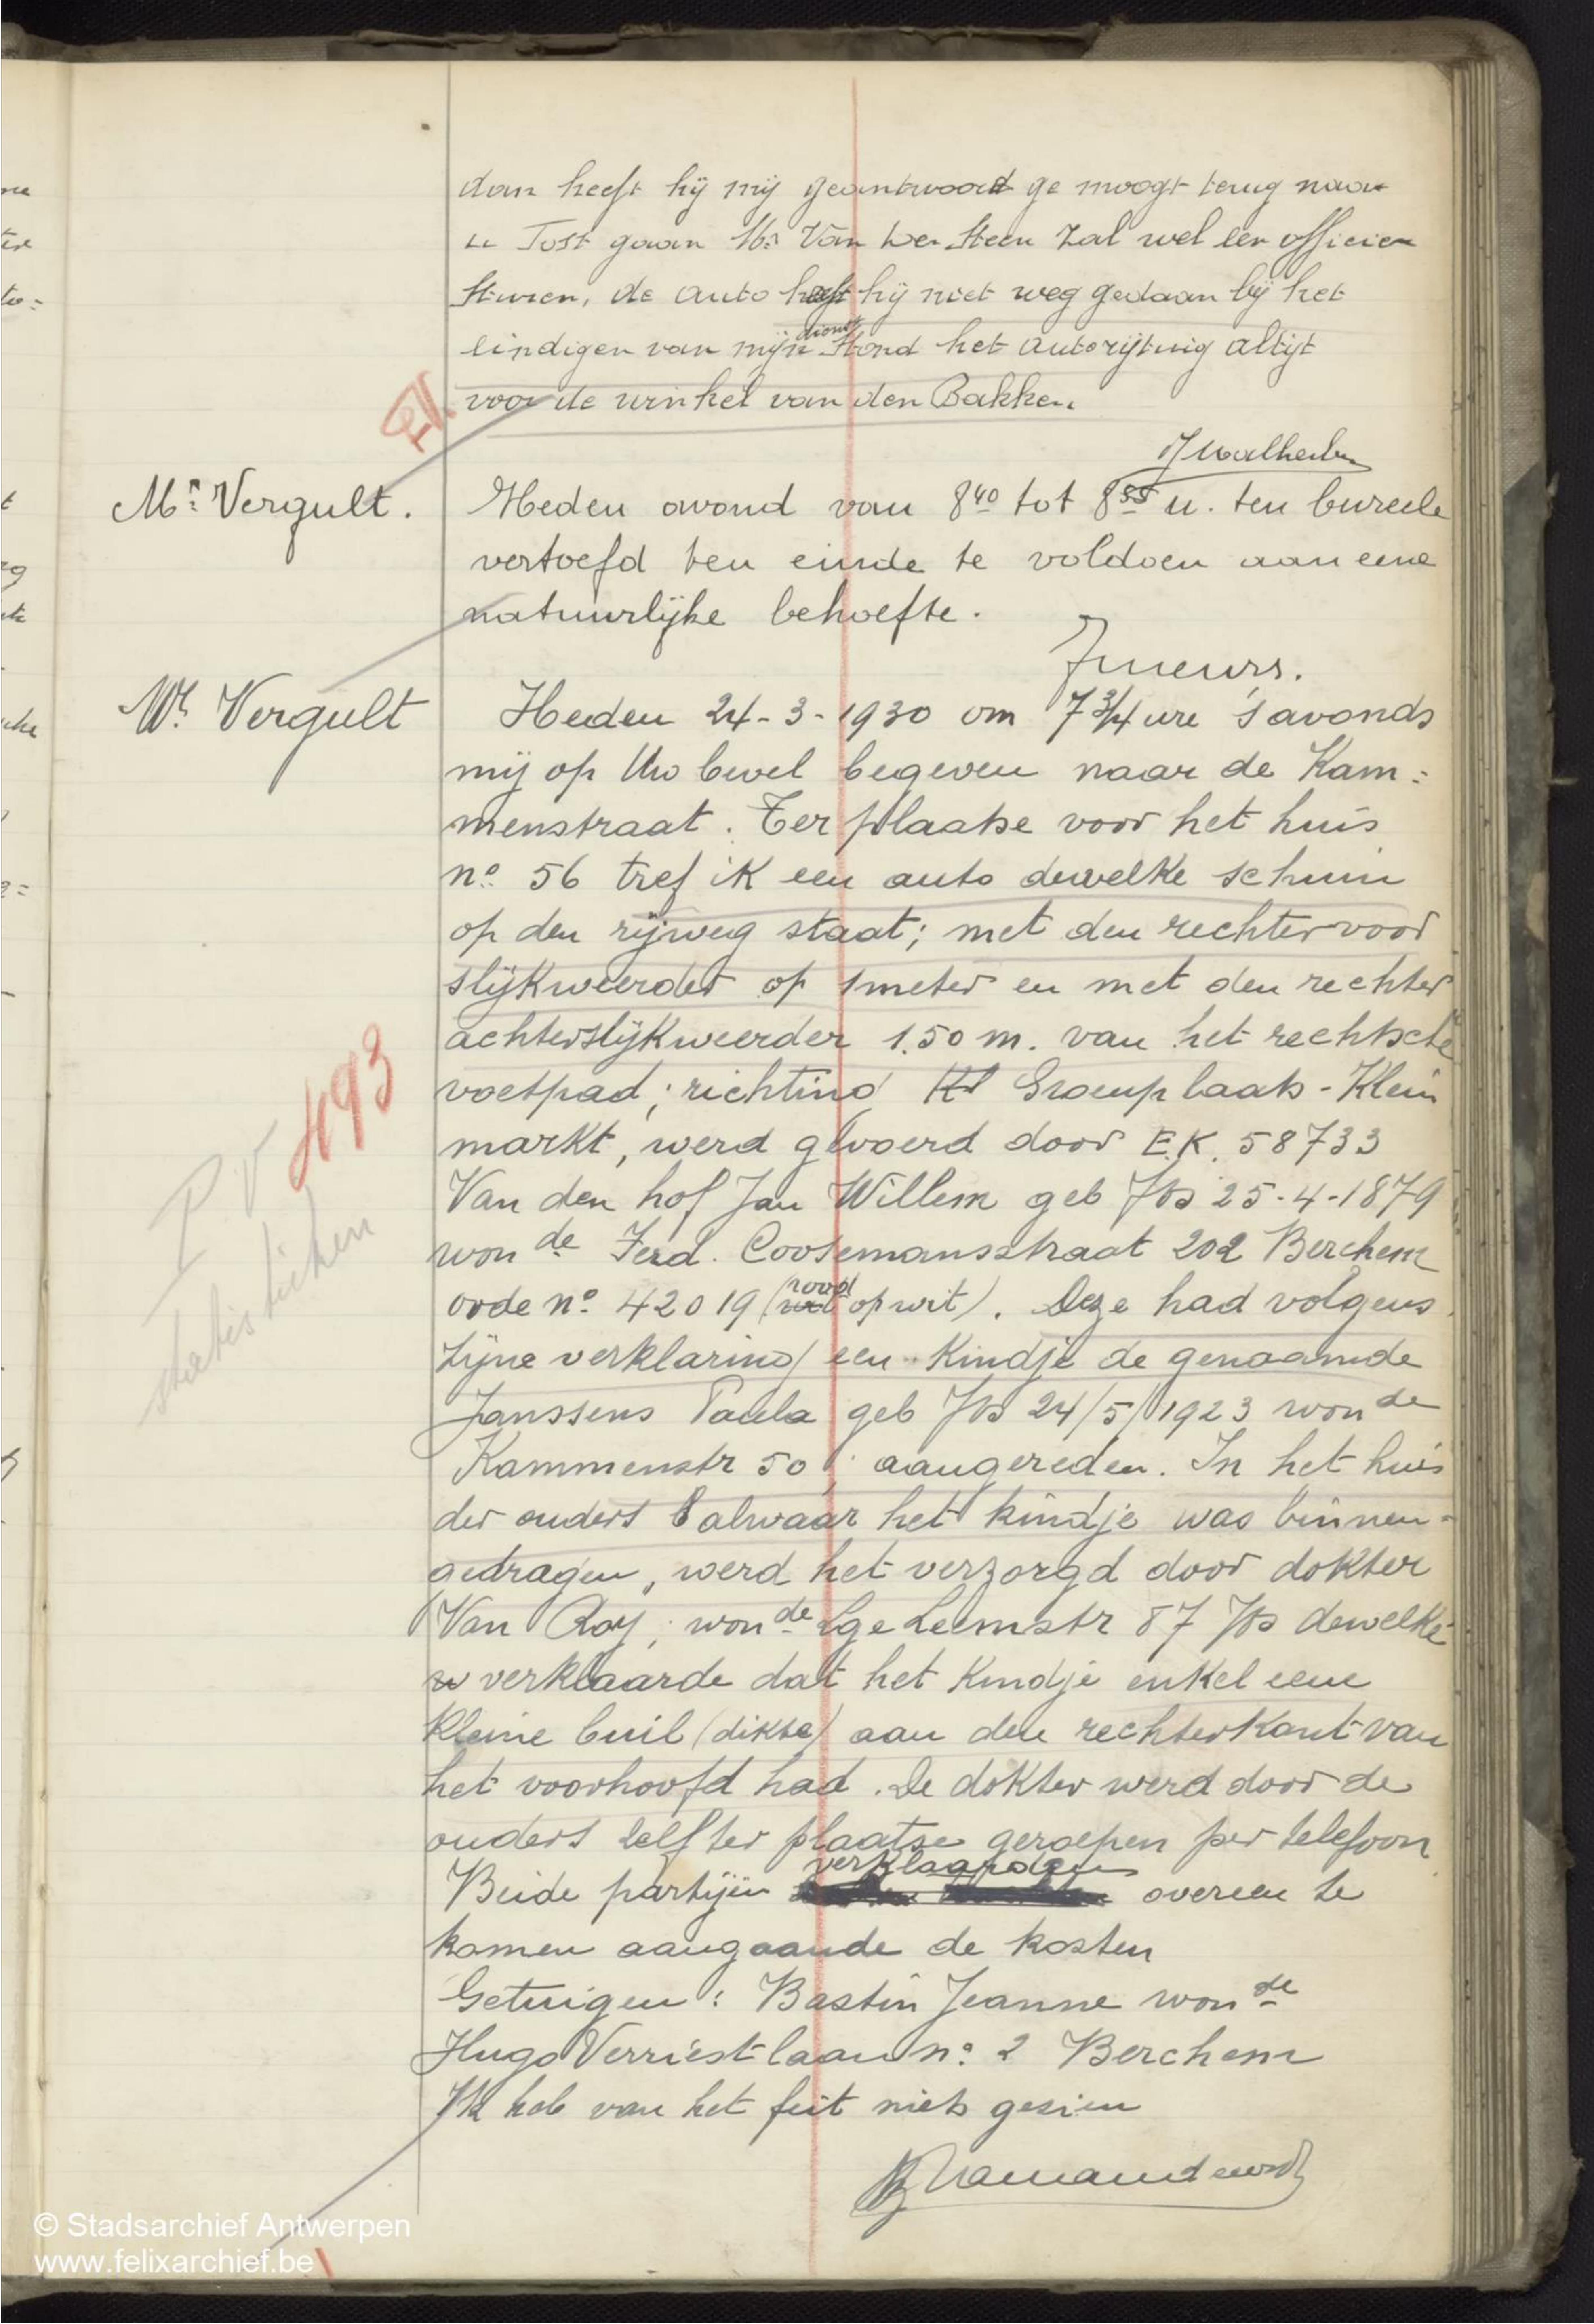 dan heeft hij mij geantwoord ge moogt terug naar
Post gaan Mr Van der Steen zal wel een officier
sturen, de auto heeft hij niet weg gedaan bij het
eindigen van mijn dienst stond het autorijtuig altijt
voor de winkel van den Bakker.
Mr Vergult.
Heden avond van 8 40 tot 8 55 u. ten bureele
vertoefd ten einde te voldoen aan eene
natuurlijke behoefte.
Mr Vergult
Heden 24-3-1930 om 7 3/4 ure 's avonds
mij op Uw bevel begeven naar de Kam=
menstraat. Ter plaatse voor het huis
no 56 tref ik een auto dewelke schuin
op den rijweg staat; met den rechtervoor
slijkweerder op 1 meter en met den rechter
achterslijkweerder 1.50 m. van het rechtsche
voetpad; richting Groenplaats - Klein
markt, werd gevoerd door E.K. 58733
Van den hof Jan Willem geb 25-4-1879
won de Ferd. Coosemansstraat 202 Berchem
orde no 42019 (rood op wit). Deze had volgens
zijne verklaring een kindje de genaamde
Janssens Paula geb 24/5/1923 won de
Kammenstr 50, aangereden. In het huis
der ouders alwaar het kindje was binnen=
gedragen, werd het verzorgd door dokter
Van Roy, won de Lge Leemstr 87 dewelke
verklaarde dat het kindje enkel eene
kleine buil (dikte) aan den rechterkant van
het voorhoofd had. De dokter werd door de
ouders zelf ter plaatse geroepen per telefoon
Beide partijen verklaarden overeen te
komen aangaande de kosten
Getuigen: Bastin Jeanne won de
Hugo Verriestlaan no 2 Berchem
Ik heb van het feit niets gezien
P.V 493
statistieken
© Stadsarchief Antwerpen
www.felixarchief.be